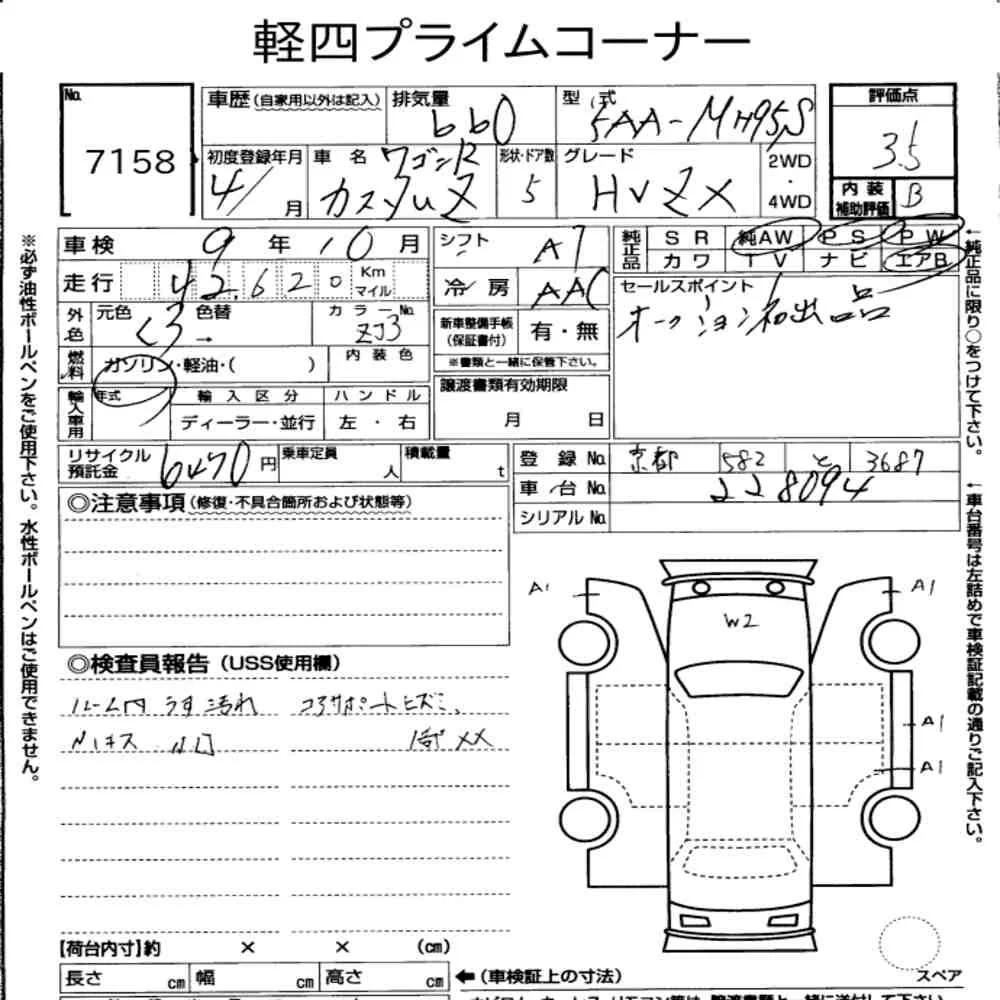 軽四プライムコーナー
No. 7158
車歴（自家用以外は記入）
排気量 660
型式 5AA-MH95S
評価点 3.5
初度登録年月 4/ 月
車名 ワゴンR カスタムZ
形状・ドア数 5
グレード HV ZX
2WD・4WD
内装補助評価 B
車検 9年 10月
シフト AT
純正品 SR 純AW PS PW
カワ TV ナビ エアB
走行 42,620 Km マイル
冷房 AAC
セールスポイント
オークション初出品
外色 元色 クロ 色替 →
カラーNo. ZJ3
新車整備手帳（保証書付） 有・無
※書類と一緒に保管下さい。
燃料 ガソリン・軽油・（ ）
内装色
輸入車用 年式 輸入区分 ハンドル
ディーラー・並行 左・右
譲渡書類有効期限
月 日
リサイクル預託金 6470円
乗車定員 人
積載量 t
登録No. 京都 582 と 3687
車台No. 228094
シリアルNo.
◎注意事項（修復・不具合箇所および状態等）
◎検査員報告（USS使用欄）
ルーム内 うす汚れ コアサポートヒズミ、
Nハキズ 小凹 1部XX
A1 A1
W2
A1
A1
【荷台内寸】約 × × （cm）
長さ cm 幅 cm 高さ cm
←（車検証上の寸法）
スペア
※必ず油性ボールペンをご使用下さい。水性ボールペンはご使用できません。
←純正品に限り○をつけて下さい。
←車台番号は左詰めで車検証記載の通りご記入下さい。